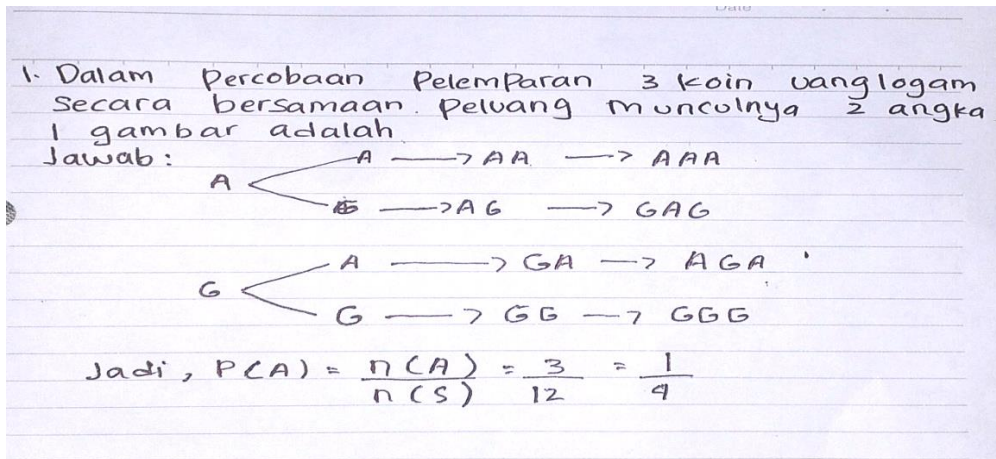 Date
1. Dalam Percobaan PelemParan 3 koin uang logam
secara bersamaan. Peluang munculnya 2 angka
1 gambar adalah
Jawab:
A → AA → AAA
A
G → AG → GAG
A → GA → AGA
G
G → GG → GGG
Jadi, P(A) = n(A) / n(S) = 3 / 12 = 1 / 4